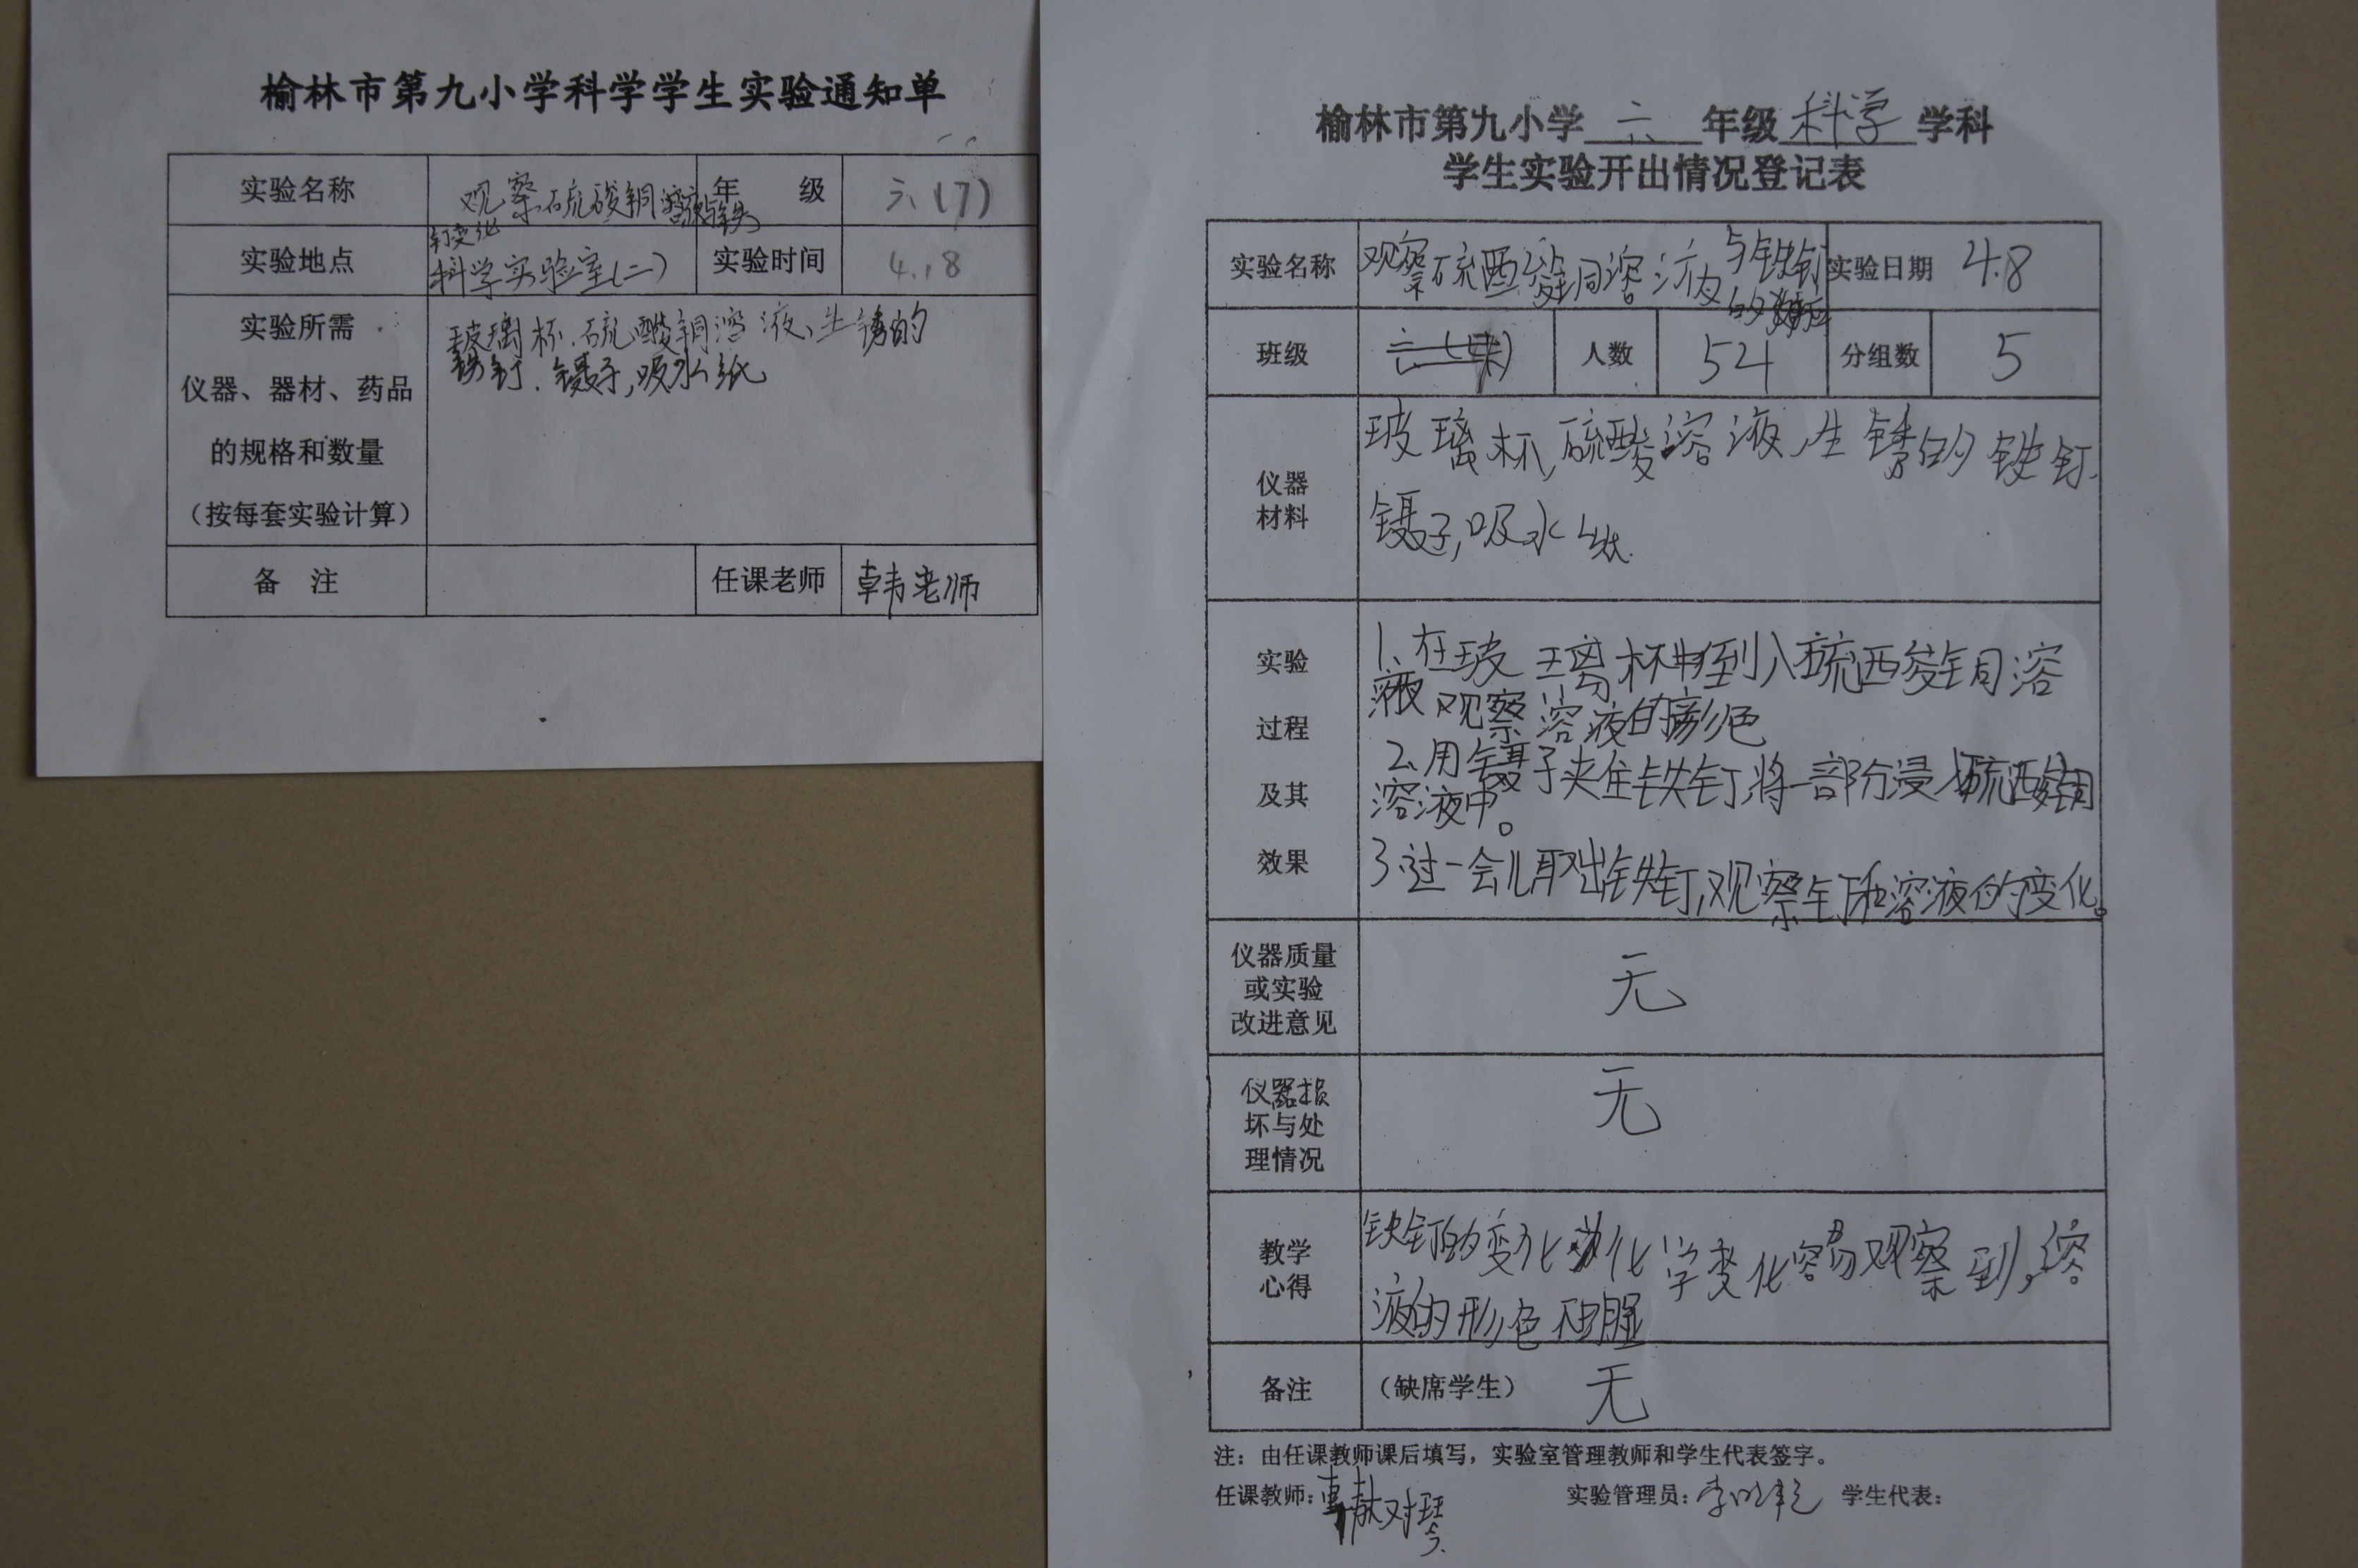 榆林市第九小学科学学生实验通知单
实验名称 观察硫酸铜溶液与铁钉变化 年 级 六(7)
实验地点 科学实验室(二) 实验时间 4.8
实验所需
仪器、器材、药品
的规格和数量
(按每套实验计算)
玻璃杯、硫酸铜溶液、生锈的
铁钉、镊子,吸水纸
备 注 任课老师 韩老师
榆林市第九小学 六 年级 科学 学科
学生实验开出情况登记表
实验名称 观察硫酸铜溶液与铁钉的 实验日期 4.8
班级 人数 54 分组数 5
仪器
材料
玻璃杯,硫酸溶液,生锈的铁钉.
镊子,吸水纸.
实验
过程
及其
效果
1、在玻璃杯中到入硫酸铜溶
液观察溶液的色
2、用镊子夹住铁钉,将一部分浸入硫酸铜
溶液中。
3、过一会儿取出铁钉,观察钉和溶液的变化。
仪器质量
或实验
改进意见
无
仪器损
坏与处
理情况
无
教学
心得
铁钉的变化化学变化容易观察到,溶
液的形色不明显
备注 (缺席学生) 无
注：由任课教师课后填写，实验室管理教师和学生代表签字。
任课教师: 实验管理员: 学生代表: